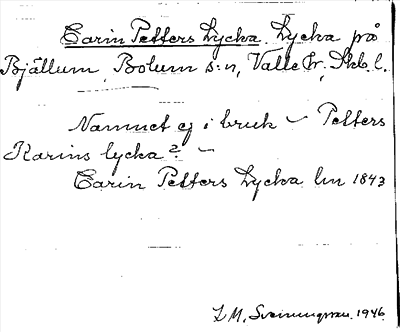 Carin Petters Lycka. Lycka på
Bjällum, Bolum s:n, Valle hr, Skb. l.
Namnet ej i bruk – Petters
Karins lycka? –
Carin Petters Lycka lm 1843
L M, Sveinungsson. 1946.